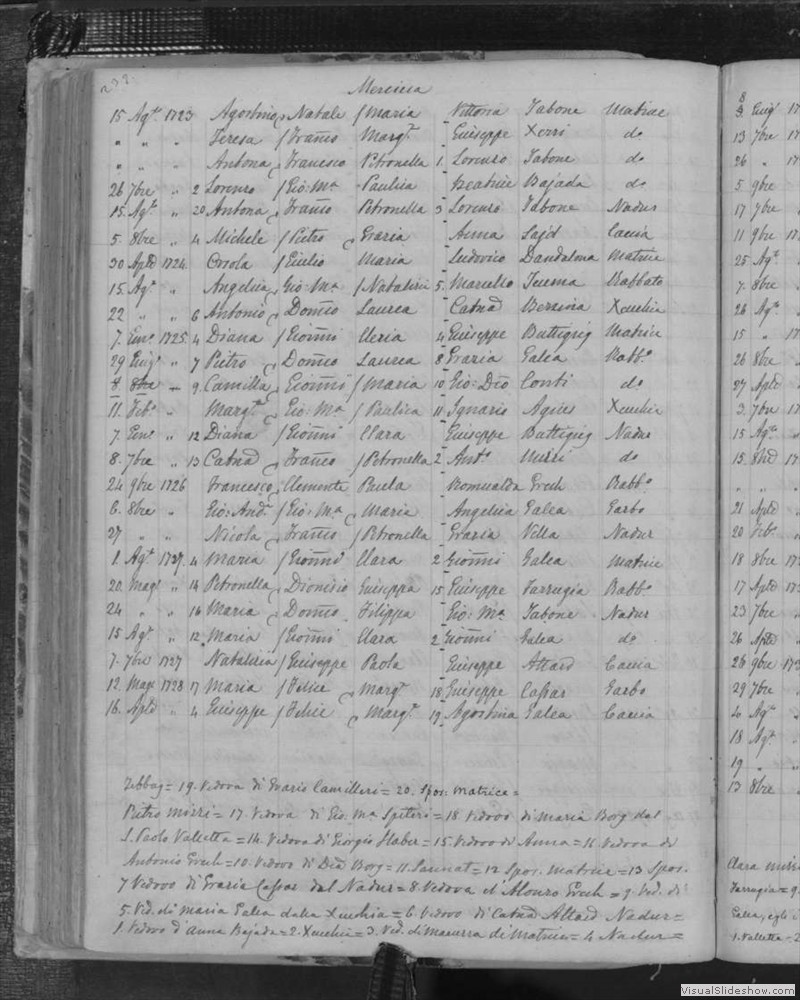 233.
Mercieca
15 Agto 1723 Agostino, Natale / Maria Vittoria Tabone Matrice
" " " Teresa / Franco Margta Giuseppe Xerri do
" " " Antona, Francesco Petronella 1. Lorenzo Tabone do
26 7bre " 2 Lorenzo / Gio: Ma Paulica Beatrice Bajada do
15. Agto " 20 Antona, Franco Petronella 3 Lorenzo Tabone Nadur
5. 8bre " 4 Michele / Pietro, Grazia Anna Said Caccia
30 Aple 1724 Orsola / Giulio Maria Ludovico Dandalona Matrice
15. Agto " Angelica, Gio: Ma / Natalizia 5. Marcello Tuema Rabbato
22 " " 6 Antonio, Domco Laurea Catna Bezzina Xeuchia
7. Genro 1725 4 Diana / Gionni Cleria 4 Giuseppe Buttigieg Matrice
29 Giugo " 7 Pietro, Domco Laurea 8 Grazia Galea Rabbo
8. 8bre - 9. Camilla, Gionni / Maria 10 Gio: Dio Conti do
11. Febo " Margta, Gio: Ma / Paulica 11 Ignazio Agius Xeuchia
7. Genro " 12 Diana / Gionni Clara Giuseppe Buttigieg Nadur
8. 7bre " 13 Catna, Franco / Petronella 2. Anto Mizzi do
24 9bre 1726 Francesco, Clemente Paula Romualda Grech Rabbo
6. 8bre " Gio: Anda / Gio: Ma, Maria Angelica Galea Garbo
27 " " Nicola, Franco / Petronella Grazia Vella Nadur
1. Agto 1727. 4 Maria / Gionni Clara 2 Gionni Galea Matrice
20. Mago " 14 Petronella, Dionisio Giuseppa 15 Giuseppe Farrugia Rabbo
24 " " 16 Maria, Domco Filippa Gio: Ma Tabone Nadur
15 Agto " 12. Maria / Gionni Clara 2 Gionni Galea do
7. 7bre 1727 Natalizia / Giuseppe Paola Giuseppe Attard Caccia
12. Mago 1728 17 Maria / Felice, Margta 18 Giuseppe Cassar Garbo
16. Aple " 4 Giuseppe / Felice, Margta 19. Agostina Galea Caccia
Zebbug = 19. Vedova di Grazio Camilleri = 20. Spos: Matrice =
Pietro Mizzi = 17. Vedova di Gio. Ma Spiteri = 18 Vedovo di Maria Borg dal
S. Paolo Valletta = 14. Vedova di Giorgio Haber = 15 Vedovo di Anna = 16. Vedova di
Antonio Grech = 10. Vedovo di Dia Borg = 11. Sannat = 12 Spos. Matrice = 13 Spos.
7 Vedovo di Grazia Cassar dal Nadur = 8. Vedova d'Alonso Grech = 9. Ved. di
5. Ved. di Maria Galea dalla Xeuchia = 6. Vedovo di Catna Attard Nadur =
1. Vedovo d'Anna Bajada = 2. Xeuchia = 3. Ved. di di Matrice = 4 Nadur =
8
3 Giugo 17
13 7bre 17
26 " 17
5 9bre
17 7bre
11 9bre 17
25 Agto
7. 8bre
26 Agto
15 " 17
26 8bre
27 Aple
3. 7bre 17
15 Agto
15. 8bre 17
" "
21 Aple
20 Febo
18 8bre 17
17 Aple 17
23 7bre
26 Aple
26 9bre 173
29 7bre
4 Agto
18 Agto
19 "
13 8bre
Clara Mizzi
Farrugia = 9.
Galea, egli
1. Valletta = 2
VisualSlideshow.com